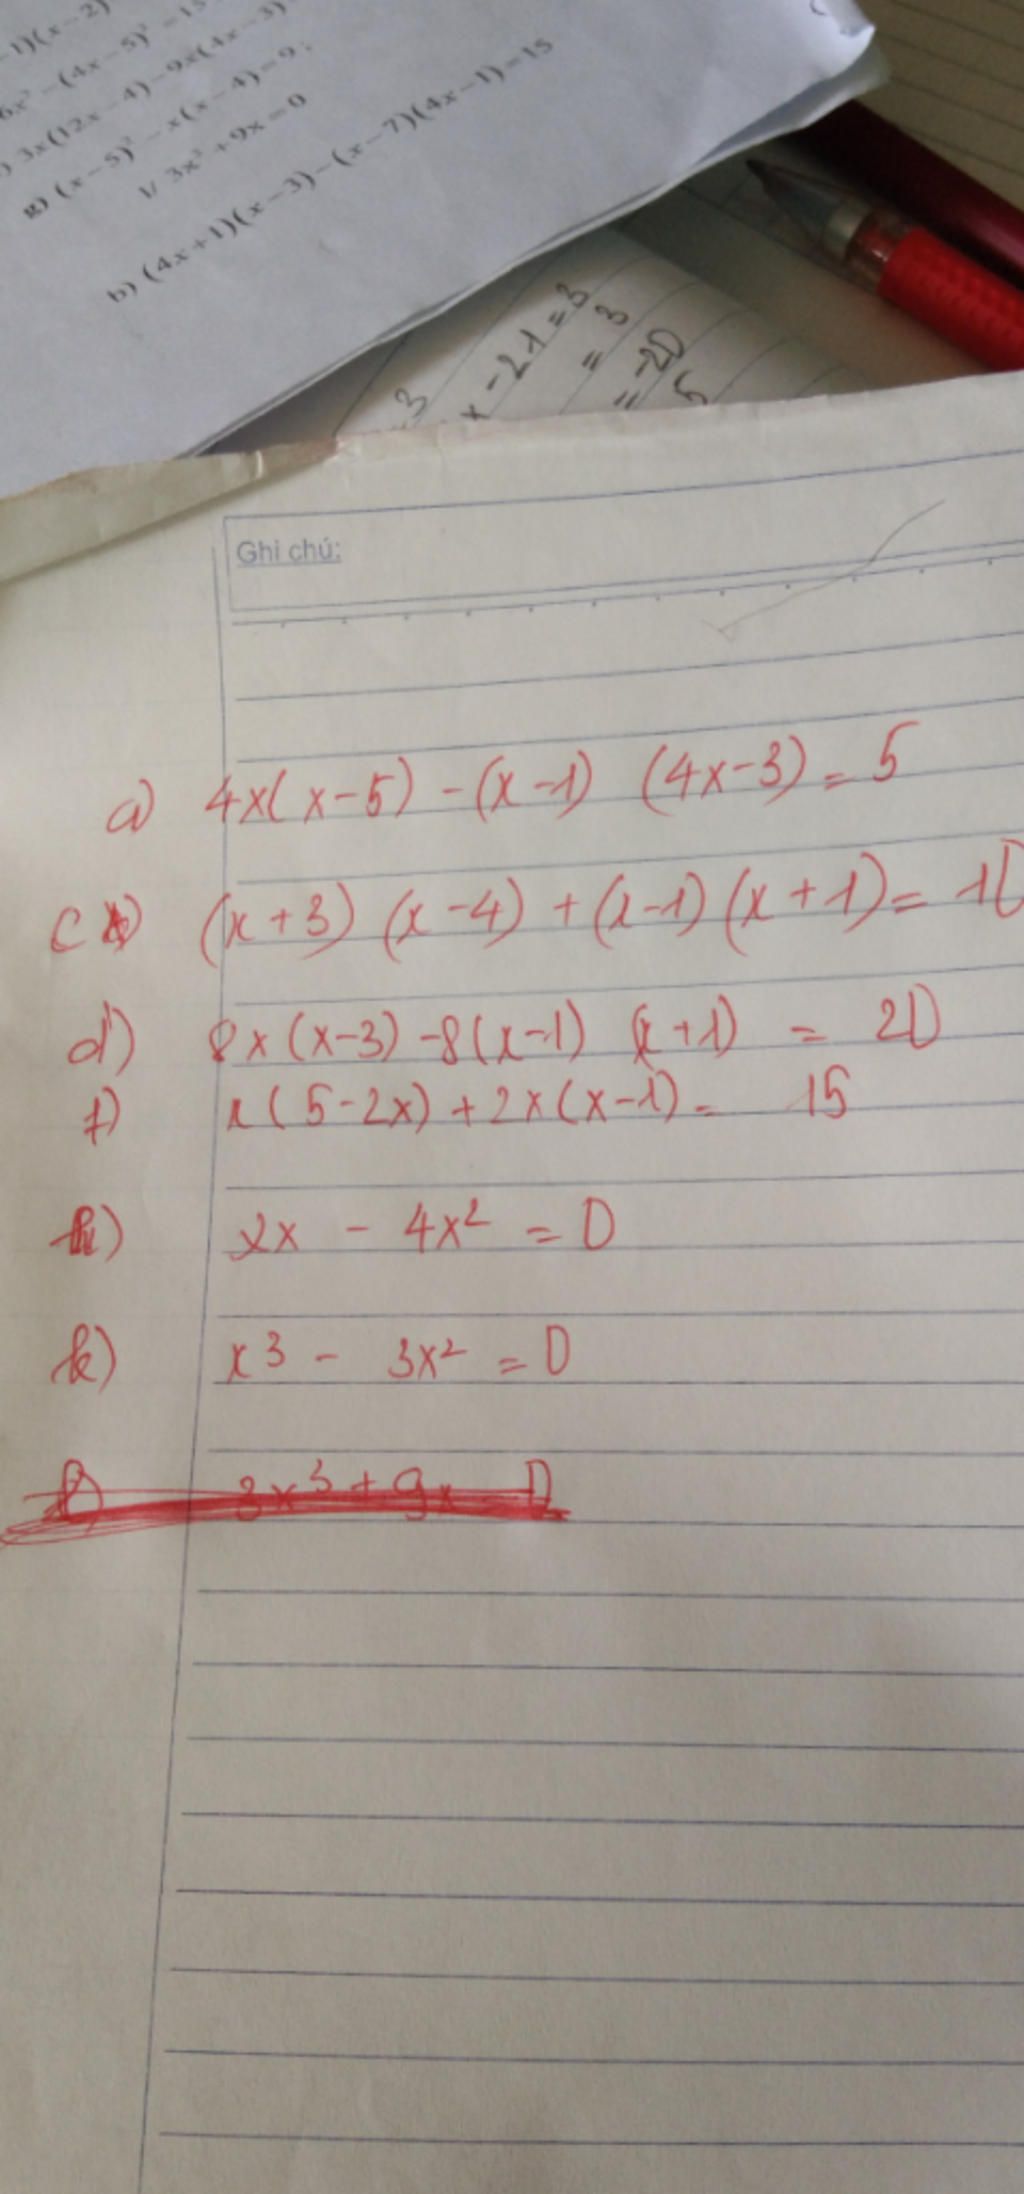 -1)(x-2)
6x² -(4x-5)² =15
) 3x(12x-4)-9x(4x-3)
g) (x-5)² -x(x-4)=9;
1/ 3x³+9x=0
b) (4x+1)(x-3)-(x-7)(4x-1)=15
-3
x -21=3
= 3
= -20
5
Ghi chú:
a) 4x(x-5) -(x-1) (4x-3)= 5
c) (x+3) (x-4) +(x-1)(x+1)= 10
d) 8x(x-3) -8(x-1) (x+1) = 20
f) x(5-2x)+2x(x-1)= 15
h) 2x - 4x² = 0
k) x³ - 3x² = 0
l) 3x³+9x=0